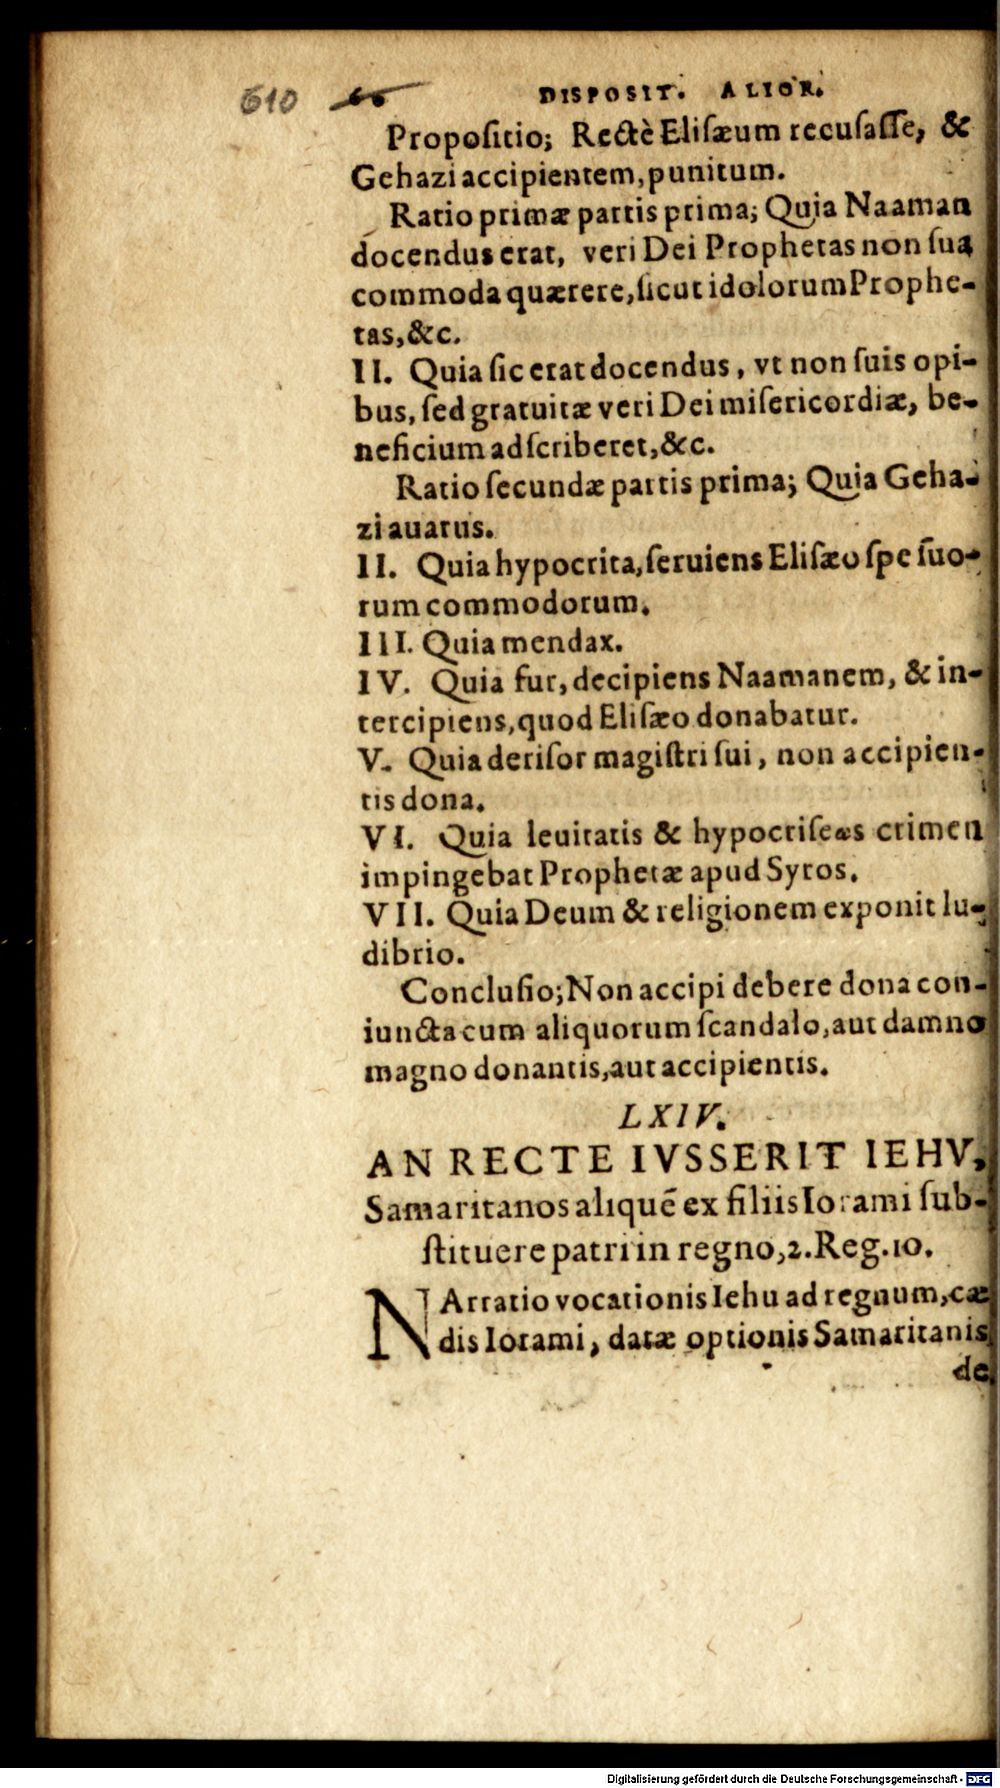 610 66 DISPOSIT. ALIOR.
Propoſitio; Rectè Eliſæum recuſaſſe, &
Gehazi accipientem, punitum.
Ratio primæ partis prima; Quia Naaman
docendus erat, veri Dei Prophetas non ſua
commoda quærere, ſicut idolorum Prophe-
tas, &c.
II. Quia ſic erat docendus, vt non ſuis opi-
bus, ſed gratuitæ veri Dei miſericordiæ, be-
neficium adſcriberet, &c.
Ratio ſecundæ partis prima; Quia Geha-
zi auarus.
II. Quia hypocrita, ſeruiens Eliſæo ſpe ſuo-
rum commodorum.
III. Quia mendax.
IV. Quia fur, decipiens Naamanem, & in-
tercipiens, quod Eliſæo donabatur.
V. Quia deriſor magiſtri ſui, non accipien-
tis dona.
VI. Quia leuitatis & hypocriſeωs crimen
impingebat Prophetæ apud Syros.
VII. Quia Deum & religionem exponit lu-
dibrio.
Concluſio; Non accipi debere dona con-
iuncta cum aliquorum ſcandalo, aut damno
magno donantis, aut accipientis.
LXIV.
AN RECTE IVSSERIT IEHV,
Samaritanos aliquē ex filiis Iorami ſub-
ſtituere patri in regno, 2. Reg. 10.
NArratio vocationis Iehu ad regnum, cæ
dis Iorami, datæ optionis Samaritanis
de
Digitalisierung gefördert durch die Deutsche Forschungsgemeinschaft - DFG